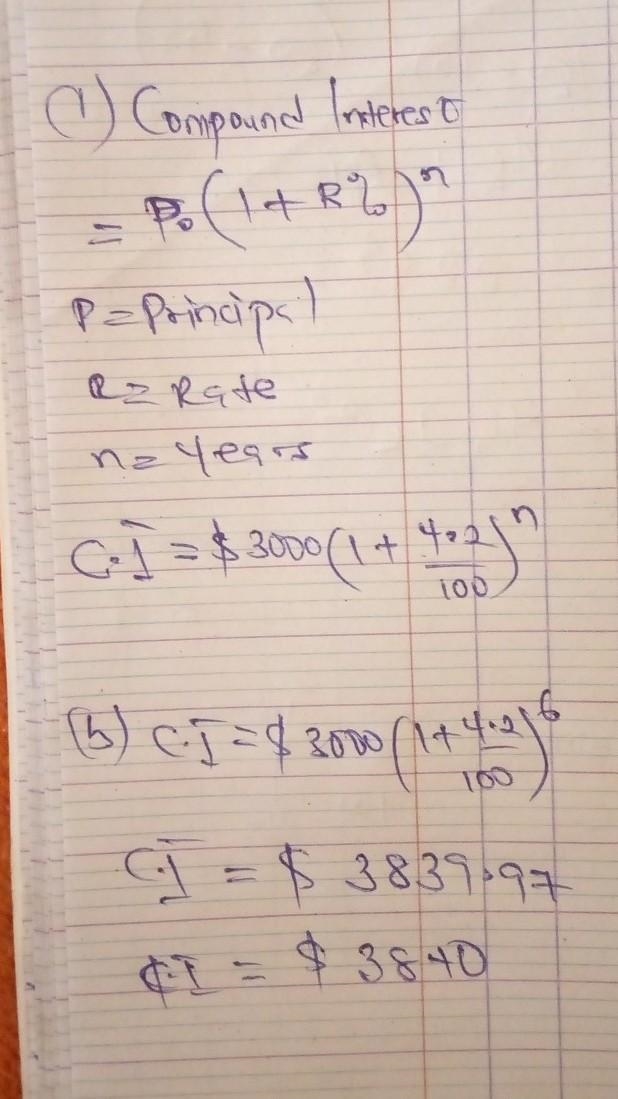 (1) Compound Interest
= P₀(1 + R%)ⁿ
P = Principal
R = Rate
n = Years
C.I = $3000(1 + 4.2/100)ⁿ
(b) C.I = $3000(1 + 4.2/100)⁶
C.I = $ 3839.97
C.I = $ 3840